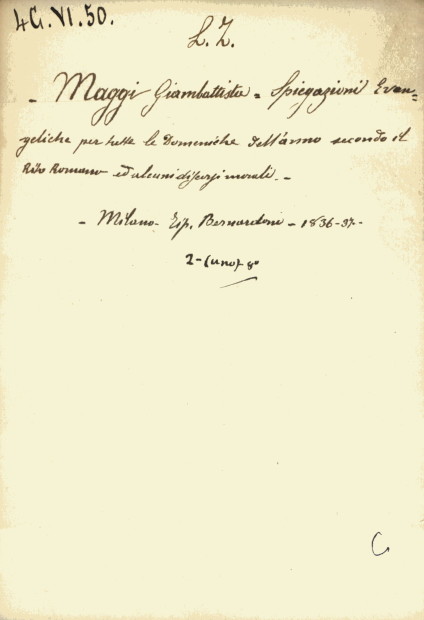 4G.VI.50.
L.Z.
- Maggi Giambattista = Spiegazioni Evan=
geliche per tutte le Domeniche dell'anno secondo il
Rito Romano ed alcuni discorsi morali. -
- Milano - Tip. Bernardoni - 1836-37 -
2 - (uno) 8°
C